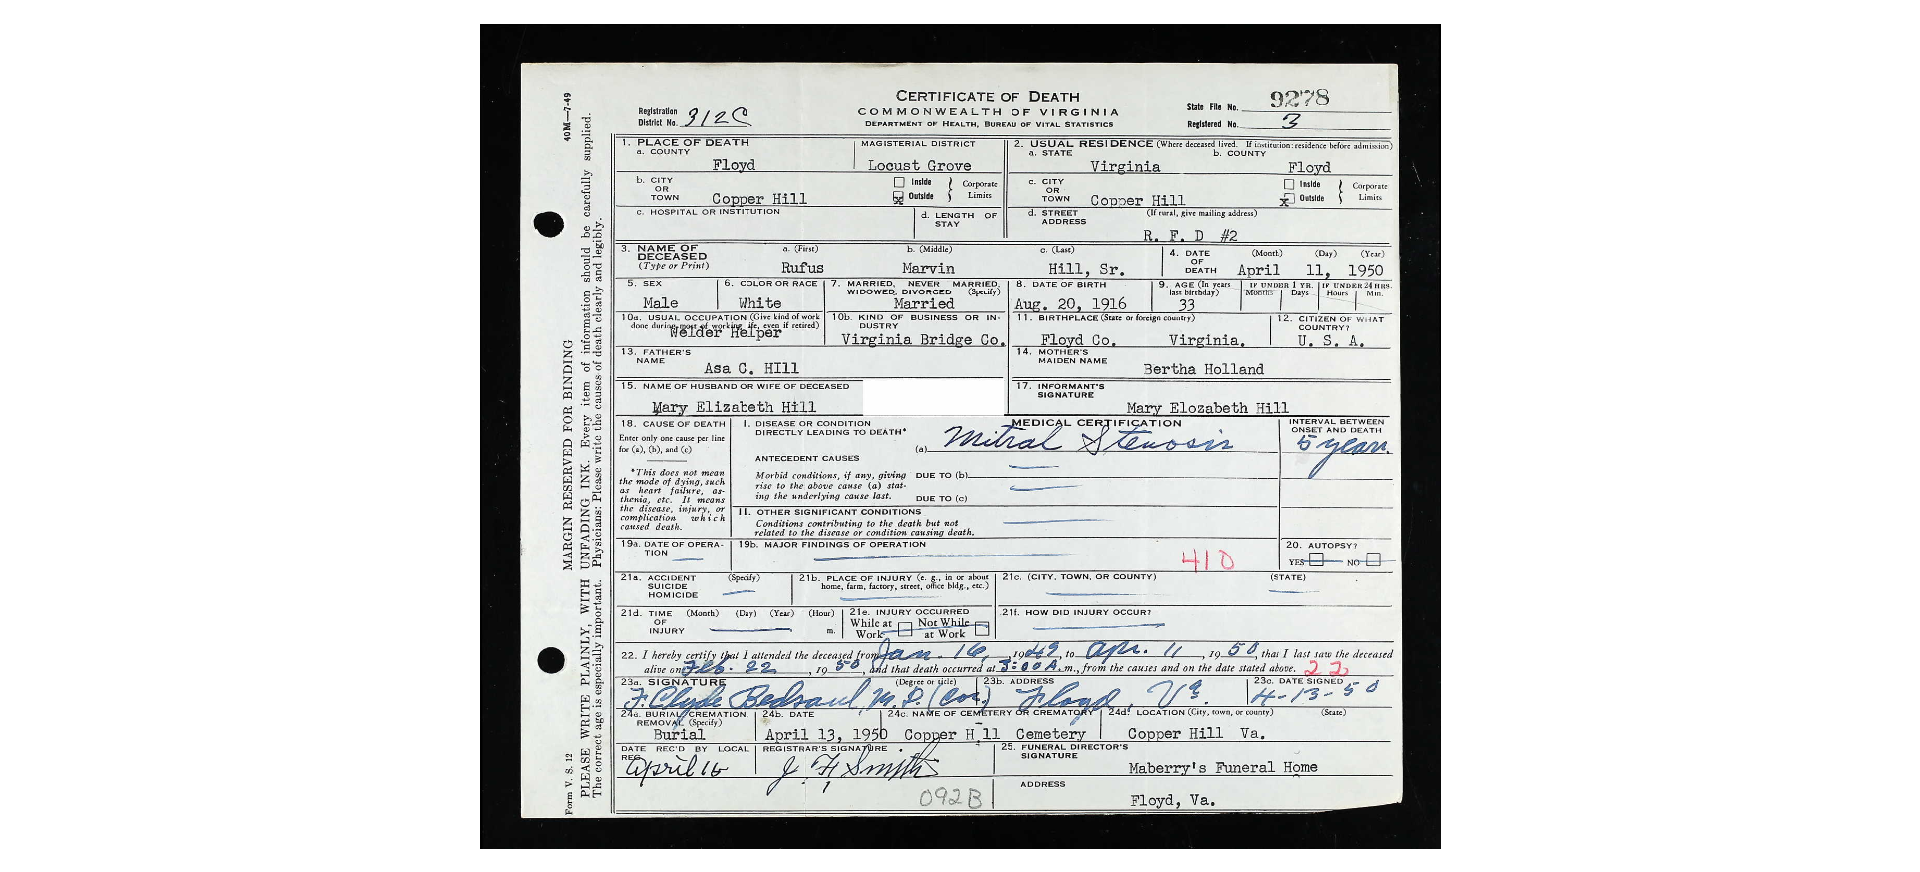 40M—7-49
MARGIN RESERVED FOR BINDING
PLEASE WRITE PLAINLY, WITH UNFADING INK. Every item of information should be carefully supplied.
The correct age is especially important. Physicians: Please write the causes of death clearly and legibly.
Form V. S. 12
CERTIFICATE OF DEATH
COMMONWEALTH OF VIRGINIA
DEPARTMENT OF HEALTH, BUREAU OF VITAL STATISTICS
Registration District No. 312C
State File No. 9278
Registered No. 3
1. PLACE OF DEATH
a. COUNTY Floyd
MAGISTERIAL DISTRICT Locust Grove
2. USUAL RESIDENCE (Where deceased lived. If institution: residence before admission)
a. STATE Virginia b. COUNTY Floyd
b. CITY OR TOWN Copper Hill Inside Outside Corporate Limits
c. CITY OR TOWN Copper Hill Inside x Outside Corporate Limits
c. HOSPITAL OR INSTITUTION
d. LENGTH OF STAY
d. STREET ADDRESS (If rural, give mailing address)
R. F. D #2
3. NAME OF DECEASED (Type or Print)
a. (First) b. (Middle) c. (Last)
Rufus Marvin Hill, Sr.
4. DATE OF DEATH (Month) (Day) (Year)
April 11, 1950
5. SEX Male
6. COLOR OR RACE White
7. MARRIED, NEVER MARRIED, WIDOWED, DIVORCED (Specify) Married
8. DATE OF BIRTH Aug. 20, 1916
9. AGE (In years last birthday) 33
IF UNDER 1 YR. Months Days
IF UNDER 24 HRS. Hours Min.
10a. USUAL OCCUPATION (Give kind of work done during most of working life, even if retired)
Welder Helper
10b. KIND OF BUSINESS OR INDUSTRY
Virginia Bridge Co.
11. BIRTHPLACE (State or foreign country)
Floyd Co. Virginia.
12. CITIZEN OF WHAT COUNTRY?
U. S. A.
13. FATHER'S NAME
Asa C. HIll
14. MOTHER'S MAIDEN NAME
Bertha Holland
15. NAME OF HUSBAND OR WIFE OF DECEASED
Mary Elizabeth Hill
17. INFORMANT'S SIGNATURE
Mary Elozabeth Hill
18. CAUSE OF DEATH
Enter only one cause per line for (a), (b), and (c)
*This does not mean the mode of dying, such as heart failure, asthenia, etc. It means the disease, injury, or complication which caused death.
MEDICAL CERTIFICATION
I. DISEASE OR CONDITION DIRECTLY LEADING TO DEATH*
(a) Mitral Stenosis
INTERVAL BETWEEN ONSET AND DEATH
5 years.
ANTECEDENT CAUSES
Morbid conditions, if any, giving rise to the above cause (a) stating the underlying cause last.
DUE TO (b)
DUE TO (c)
II. OTHER SIGNIFICANT CONDITIONS
Conditions contributing to the death but not related to the disease or condition causing death.
19a. DATE OF OPERATION
19b. MAJOR FINDINGS OF OPERATION
410
20. AUTOPSY?
YES NO
21a. ACCIDENT SUICIDE HOMICIDE (Specify)
21b. PLACE OF INJURY (e. g., in or about home, farm, factory, street, office bldg., etc.)
21c. (CITY, TOWN, OR COUNTY) (STATE)
21d. TIME OF INJURY (Month) (Day) (Year) (Hour) m.
21e. INJURY OCCURRED
While at Work Not While at Work
21f. HOW DID INJURY OCCUR?
22. I hereby certify that I attended the deceased from Jan. 16, 1949, to Apr. 11, 1950, that I last saw the deceased
alive on Feb. 22, 1950, and that death occurred at 3:00A.m., from the causes and on the date stated above. 22
23a. SIGNATURE (Degree or title)
F. Clyde Bedsaul, M.D. (Cor.)
23b. ADDRESS
Floyd, Va.
23c. DATE SIGNED
4-13-50
24a. BURIAL, CREMATION REMOVAL (Specify)
Burial
24b. DATE
April 13, 1950
24c. NAME OF CEMETERY OR CREMATORY
Copper Hill Cemetery
24d. LOCATION (City, town, or county) (State)
Copper Hill Va.
DATE REC'D BY LOCAL REG.
April 16
REGISTRAR'S SIGNATURE
J H Smith
092B
25. FUNERAL DIRECTOR'S SIGNATURE
Maberry's Funeral Home
ADDRESS
Floyd, Va.